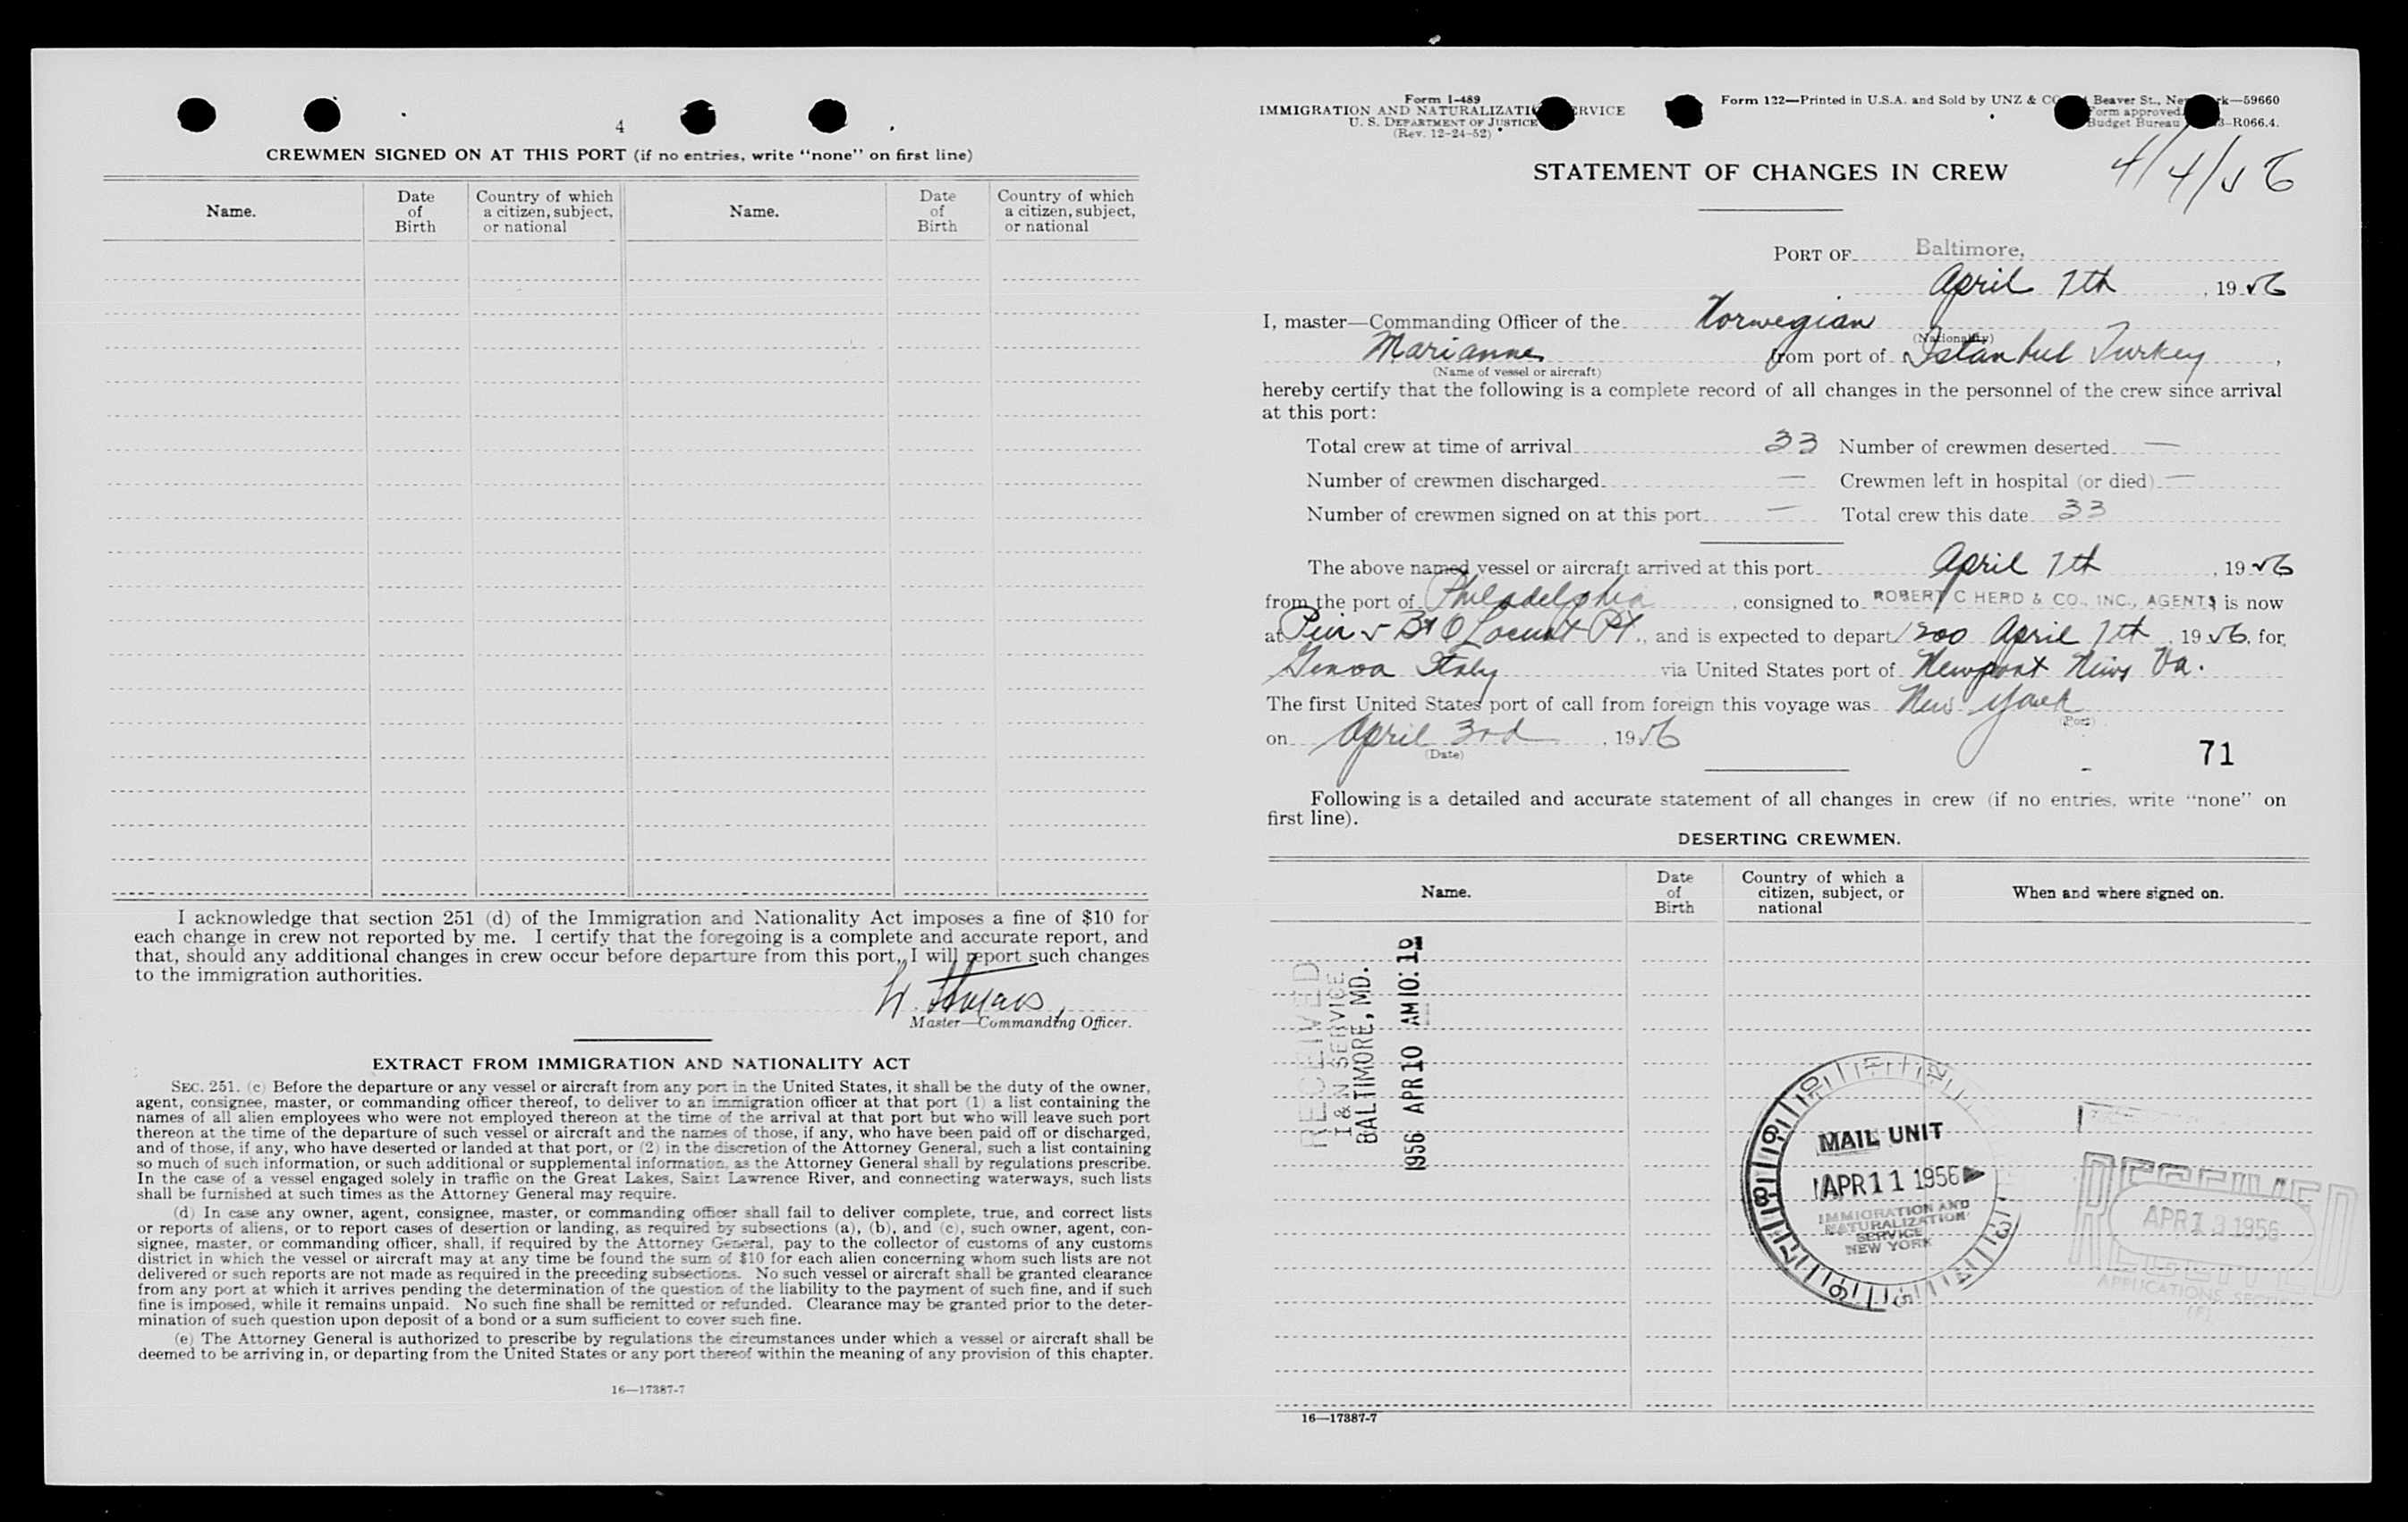 4
CREWMEN SIGNED ON AT THIS PORT (if no entries, write "none" on first line)
Name. Date of Birth Country of which a citizen, subject, or national Name. Date of Birth Country of which a citizen, subject, or national
I acknowledge that section 251 (d) of the Immigration and Nationality Act imposes a fine of $10 for
each change in crew not reported by me. I certify that the foregoing is a complete and accurate report, and
that, should any additional changes in crew occur before departure from this port, I will report such changes
to the immigration authorities.
Master—Commanding Officer.
EXTRACT FROM IMMIGRATION AND NATIONALITY ACT
SEC. 251. (c) Before the departure or any vessel or aircraft from any port in the United States, it shall be the duty of the owner,
agent, consignee, master, or commanding officer thereof, to deliver to an immigration officer at that port (1) a list containing the
names of all alien employees who were not employed thereon at the time of the arrival at that port but who will leave such port
thereon at the time of the departure of such vessel or aircraft and the names of those, if any, who have been paid off or discharged,
and of those, if any, who have deserted or landed at that port, or (2) in the discretion of the Attorney General, such a list containing
so much of such information, or such additional or supplemental information, as the Attorney General shall by regulations prescribe.
In the case of a vessel engaged solely in traffic on the Great Lakes, Saint Lawrence River, and connecting waterways, such lists
shall be furnished at such times as the Attorney General may require.
(d) In case any owner, agent, consignee, master, or commanding officer shall fail to deliver complete, true, and correct lists
or reports of aliens, or to report cases of desertion or landing, as required by subsections (a), (b), and (c), such owner, agent, con-
signee, master, or commanding officer, shall, if required by the Attorney General, pay to the collector of customs of any customs
district in which the vessel or aircraft may at any time be found the sum of $10 for each alien concerning whom such lists are not
delivered or such reports are not made as required in the preceding subsections. No such vessel or aircraft shall be granted clearance
from any port at which it arrives pending the determination of the question of the liability to the payment of such fine, and if such
fine is imposed, while it remains unpaid. No such fine shall be remitted or refunded. Clearance may be granted prior to the deter-
mination of such question upon deposit of a bond or a sum sufficient to cover such fine.
(e) The Attorney General is authorized to prescribe by regulations the circumstances under which a vessel or aircraft shall be
deemed to be arriving in, or departing from the United States or any port thereof within the meaning of any provision of this chapter.
16—17387-7
Form I-489
IMMIGRATION AND NATURALIZATION SERVICE
U. S. DEPARTMENT OF JUSTICE
(Rev. 12-24-52)
Form 122—Printed in U.S.A. and Sold by UNZ & CO Beaver St., New York—59660
Form approved.
Budget Bureau 3-R066.4.
4/4/56
STATEMENT OF CHANGES IN CREW
PORT OF Baltimore,
April 7th, 1956
I, master—Commanding Officer of the Norwegian
(Nationality)
Marianne from port of Istanbul Turkey,
(Name of vessel or aircraft)
hereby certify that the following is a complete record of all changes in the personnel of the crew since arrival
at this port:
Total crew at time of arrival 33 Number of crewmen deserted —
Number of crewmen discharged — Crewmen left in hospital (or died) —
Number of crewmen signed on at this port — Total crew this date 33
The above named vessel or aircraft arrived at this port April 7th, 1956
from the port of Philadelphia, consigned to ROBERT C HERD & CO., INC., AGENTS is now
at Pier 5 B & O Locust Pt., and is expected to depart 1200 April 7th, 1956, for
Genoa Italy via United States port of Newport News Va.
The first United States port of call from foreign this voyage was New York
(Port)
on April 3rd, 1956
(Date)
71
Following is a detailed and accurate statement of all changes in crew (if no entries, write "none" on
first line).
DESERTING CREWMEN.
Name. Date of Birth Country of which a citizen, subject, or national When and where signed on.
RECEIVED
I & N SERVICE
BALTIMORE, MD.
1956 APR 10 AM 10:
MAIL UNIT
APR 11 1956
IMMIGRATION AND
NATURALIZATION
SERVICE
NEW YORK
RECEIVED
APR 13 1956
RECEIVED
APPLICATIONS SECTION
(F)
16—17387-7